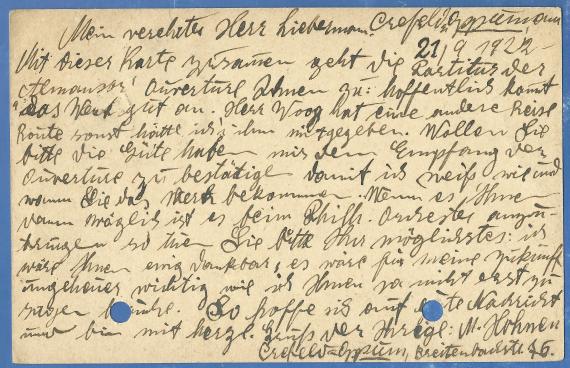 Mein verehrter Herr Liebermann. Crefeld-Oppum, am
21/9 1922
Mit dieser Karte zusammen geht die Partitur der
Almansor Ouverture Ihnen zu: hoffentlich kommt
das Werk gut an. Herr Woog hat eine andere Reise
Route sonst hätte ich's ihm mitgegeben. Wollen Sie
bitte die Güte haben mir den Empfang der
Ouverture zu bestätigen damit ich weiß wie und
wann Sie das Werk bekommen. Wenn es Ihnen
dann möglich ist es beim Philh. Orchester anzu-
bringen so tuen Sie bitte Ihr möglichstes: ich
wäre Ihnen ewig dankbar, es wäre für meine Zukunft
ungeheuer wichtig wie ich Ihnen ja nicht erst zu
sagen brauche. So hoffe ich auf gute Nachricht
und bin mit herzl. Gruß der Ihrige: M. Hohnen
Crefeld-Oppum, Breitenbachstr. 76.